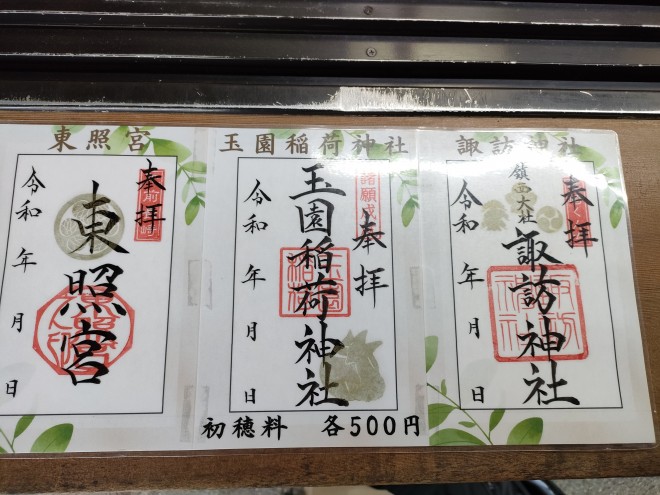 東照宮
奉拝
東照宮
令和 年 月 日
玉園稲荷神社
諸願成
奉拝
玉園稲荷神社
令和 年 月 日
諏訪神社
奉拝
鎮西大社
諏訪神社
令和 年 月 日
初穂料 各500円